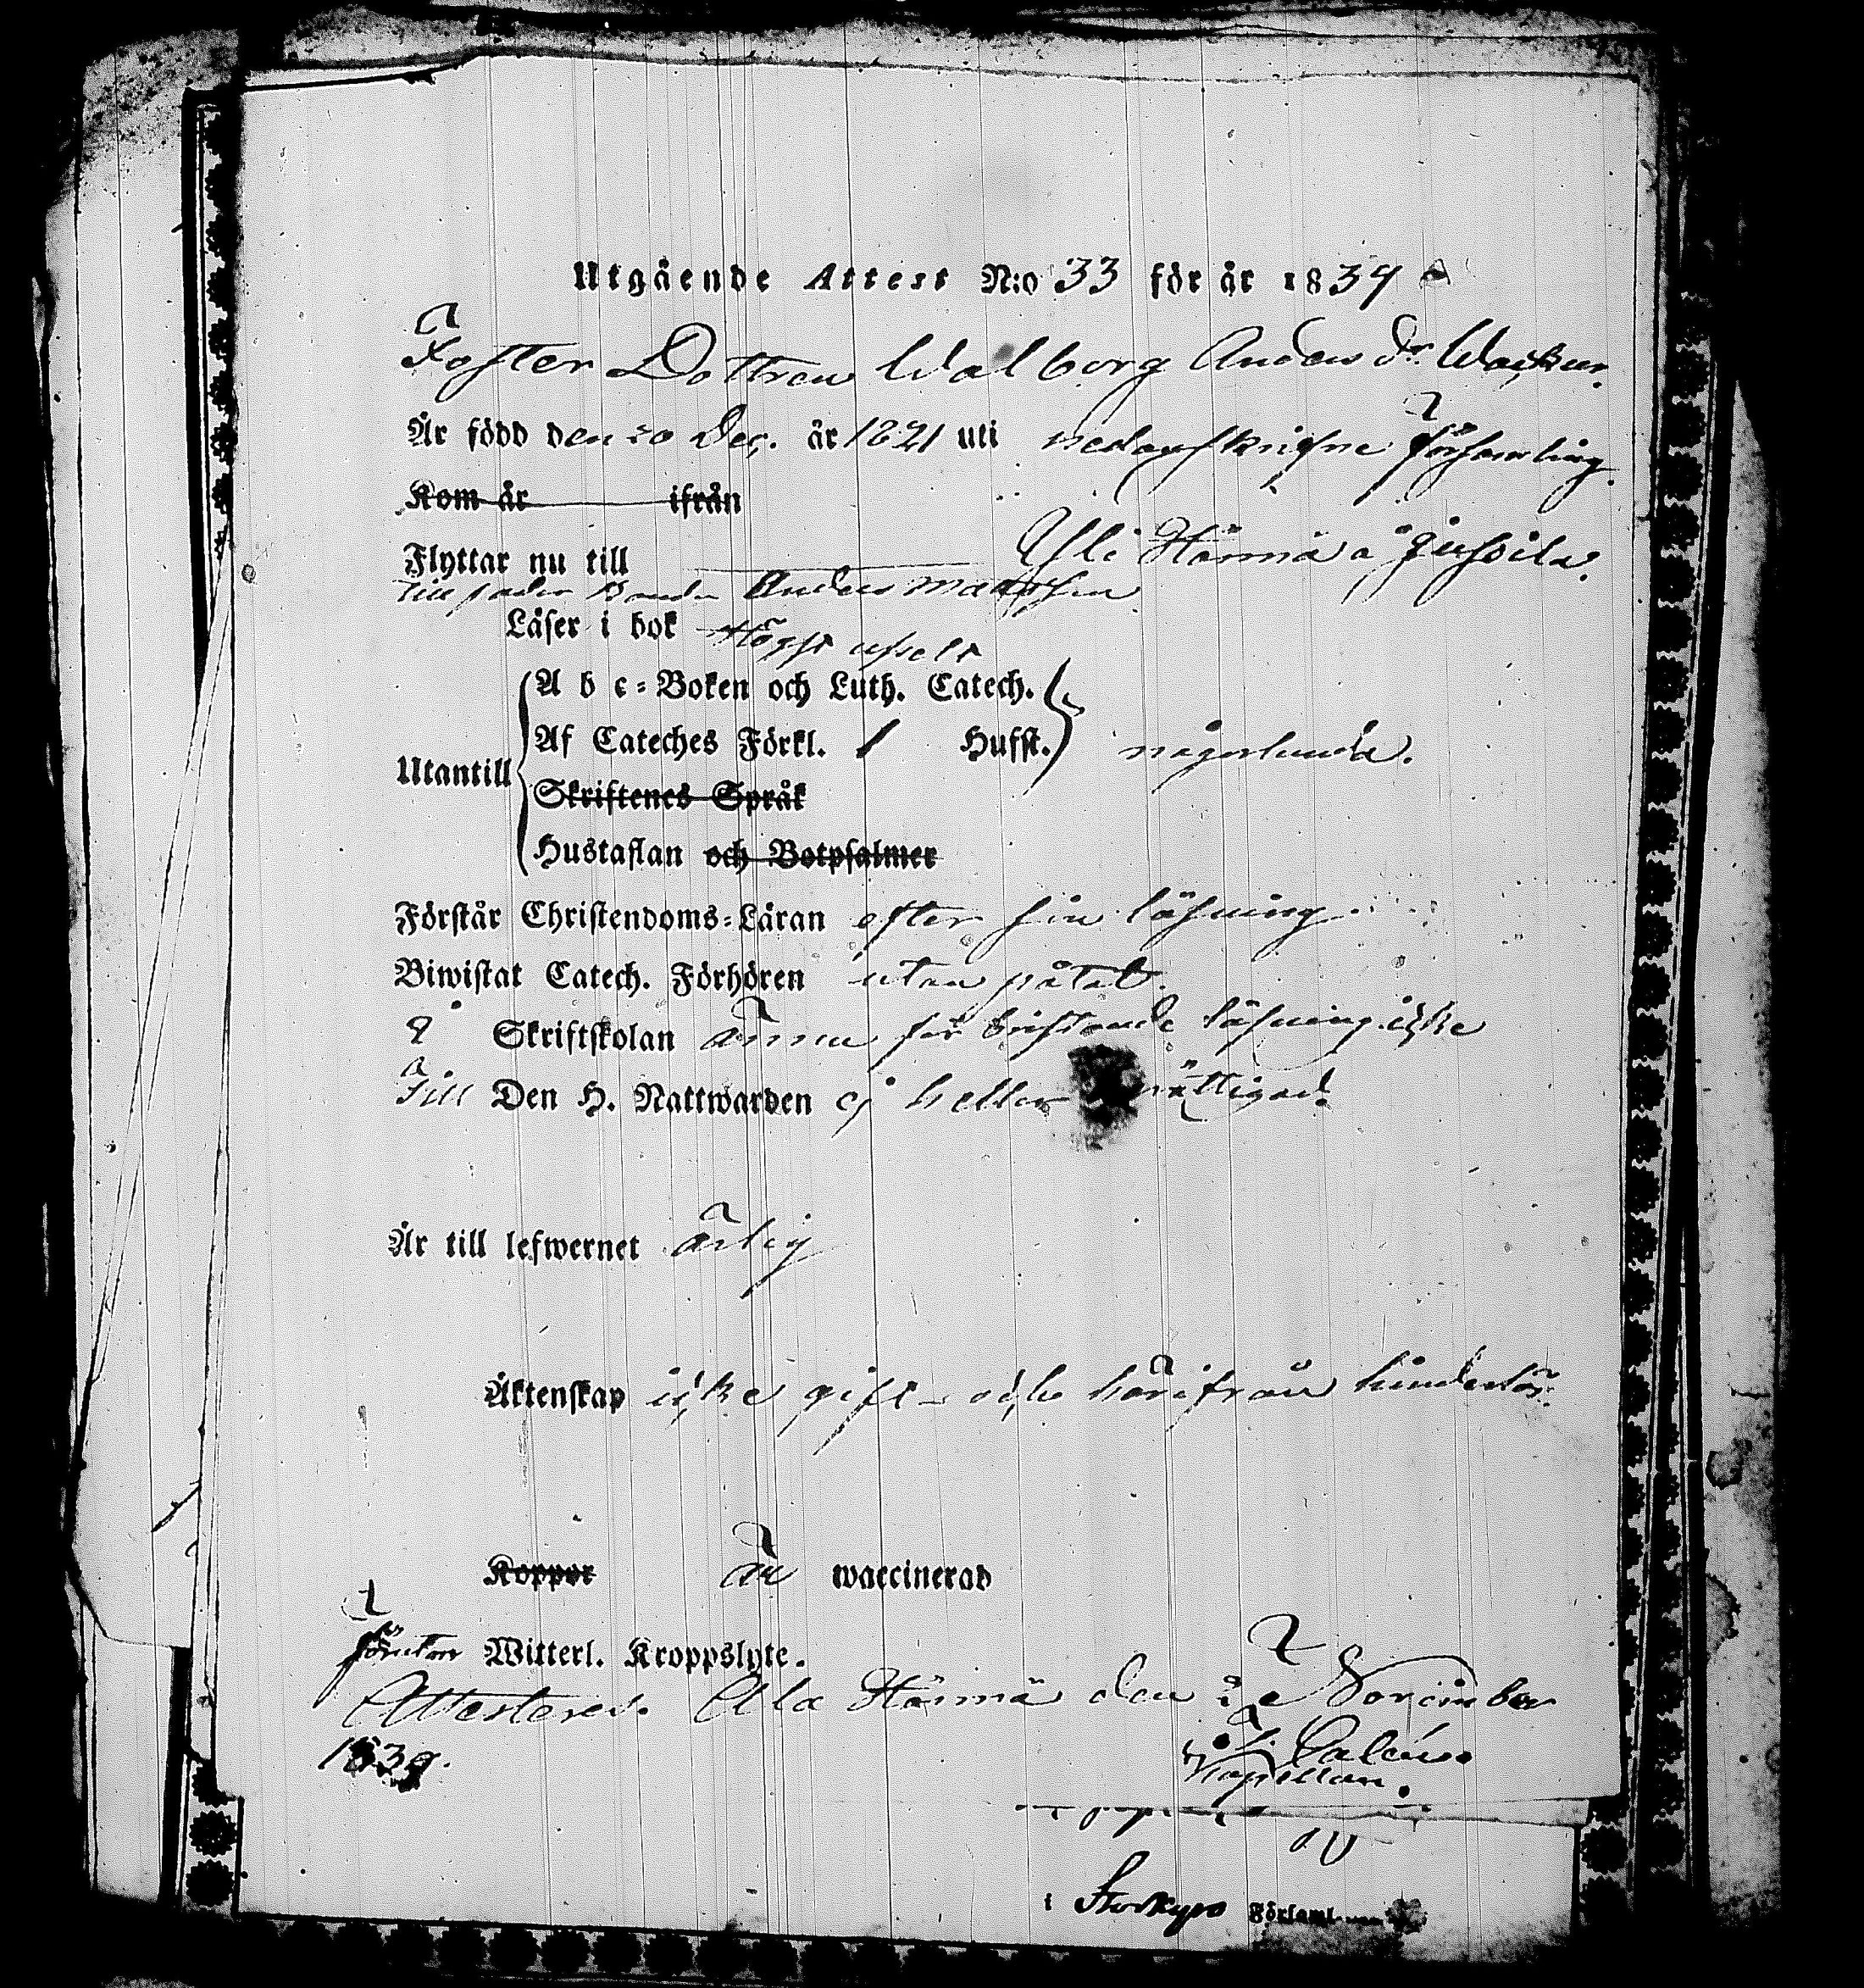 Utgående Attest N:o 33 för år 1839
Foster Dottren Walborg Anders dr
Är född den 20 Dec. är 1821 uti nedanskrifne församling
Kom år ifrån
Flyttar nu till Yli Härmä å Jussila.
Till fader Bonden Anders Mattsson
Läser i bok Högst uselt
A b c-Boken och Luth. Catech.
Af Cateches Förkl. 1 Hufst. någorlunda.
Utantill
Skriftenes Språk
Hustaflan och Botpsalmer
Förstår Christendoms-Läran efter sin läsning
Biwistat Catech. Förhören utan påtal.
Skriftskolan ännu för bristande läsning icke
Till Den H. Nattwarden ej heller
Är till lefwernet ärlig
Äktenskap icke gift och härifrån hinderlös.
Koppor är waccinerad
förutan Witterl. Kroppslyte.
Attesteras. Ala Härmä den 2 November
1839.
Calén.
Kapellan.
i Storkyro Församl.